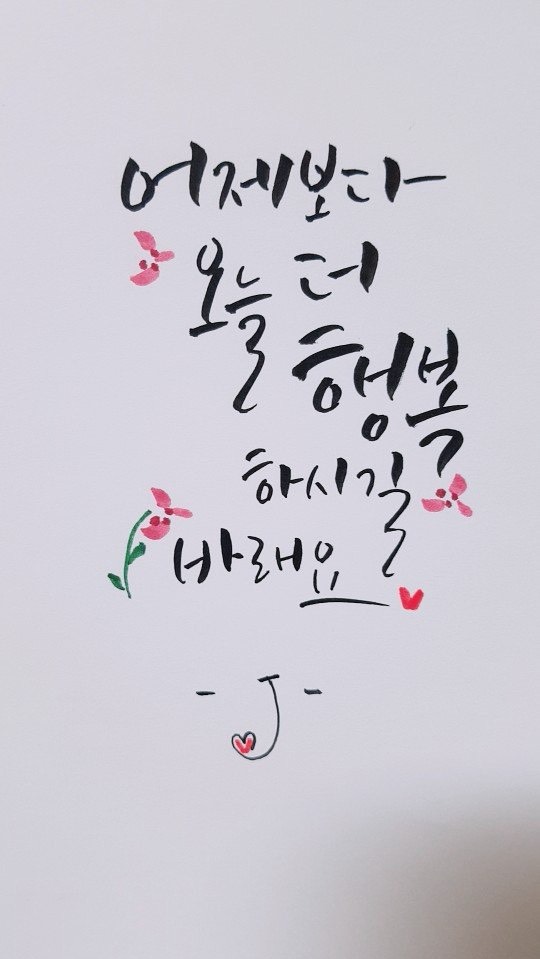 어제보다
오늘 더
행복
하시길
바래요
- J -